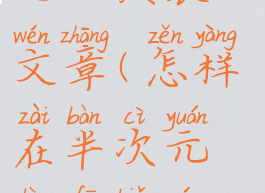 wén zhāng zěn yàng
文章(怎样
zài bàn cì yuán
在半次元